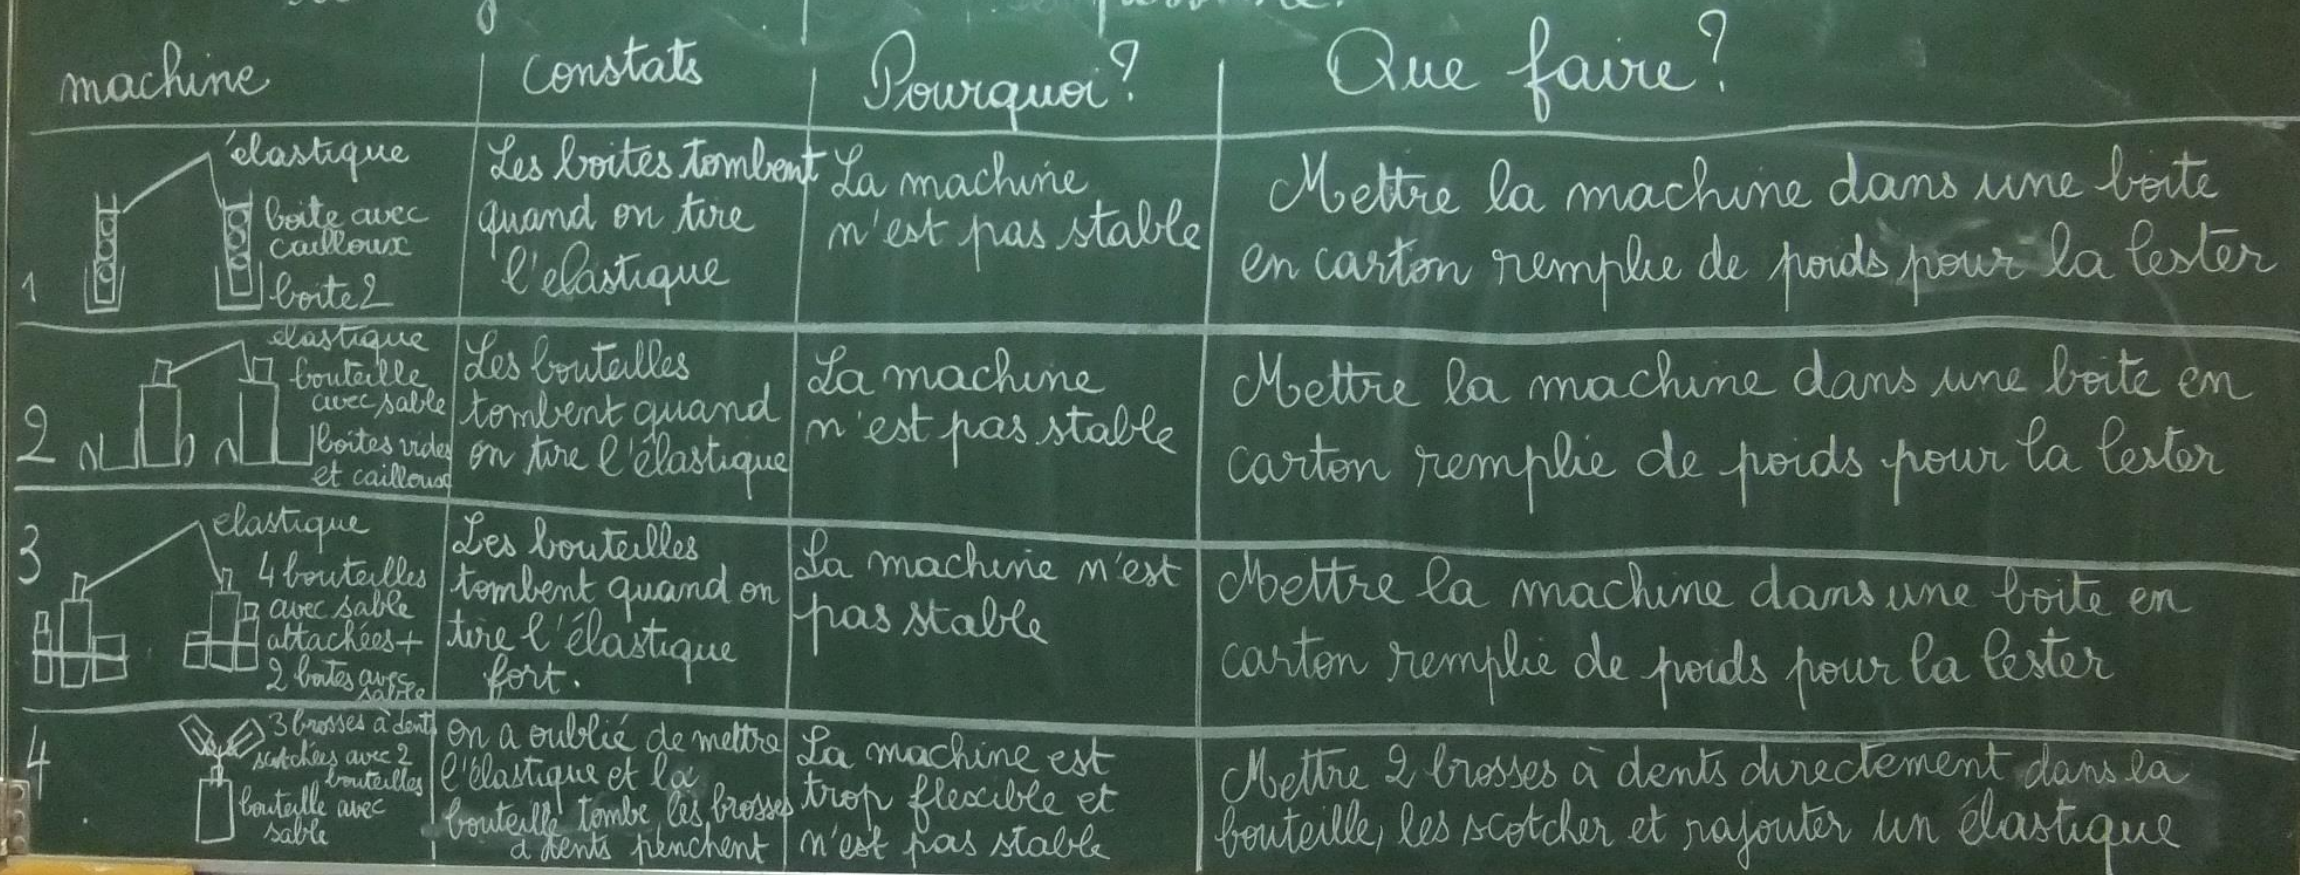 machine
constats
Pourquoi?
Que faire?
1
élastique
boite avec
cailloux
boite 2
Les boites tombent
quand on tire
l'elastique
La machine
n'est pas stable
Mettre la machine dans une boite
en carton remplie de poids pour la lester
2
elastique
bouteille
avec sable
boites vides
et cailloux
Les bouteilles
tombent quand
on tire l'élastique
La machine
n'est pas stable
Mettre la machine dans une boite en
carton remplie de poids pour la lester
3
elastique
4 bouteilles
avec sable
attachées +
2 boites avec
sable
Les bouteilles
tombent quand on
tire l'élastique
fort.
La machine n'est
pas stable
Mettre la machine dans une boite en
carton remplie de poids pour la lester
4
3 brosses à dent
scotchées avec 2
bouteilles
bouteille avec
sable
On a oublié de mettre
l'élastique et la
bouteille tombe les brosses
à dents penchent
La machine est
trop flexible et
n'est pas stable
Mettre 2 brosses à dents directement dans la
bouteille, les scotcher et rajouter un élastique